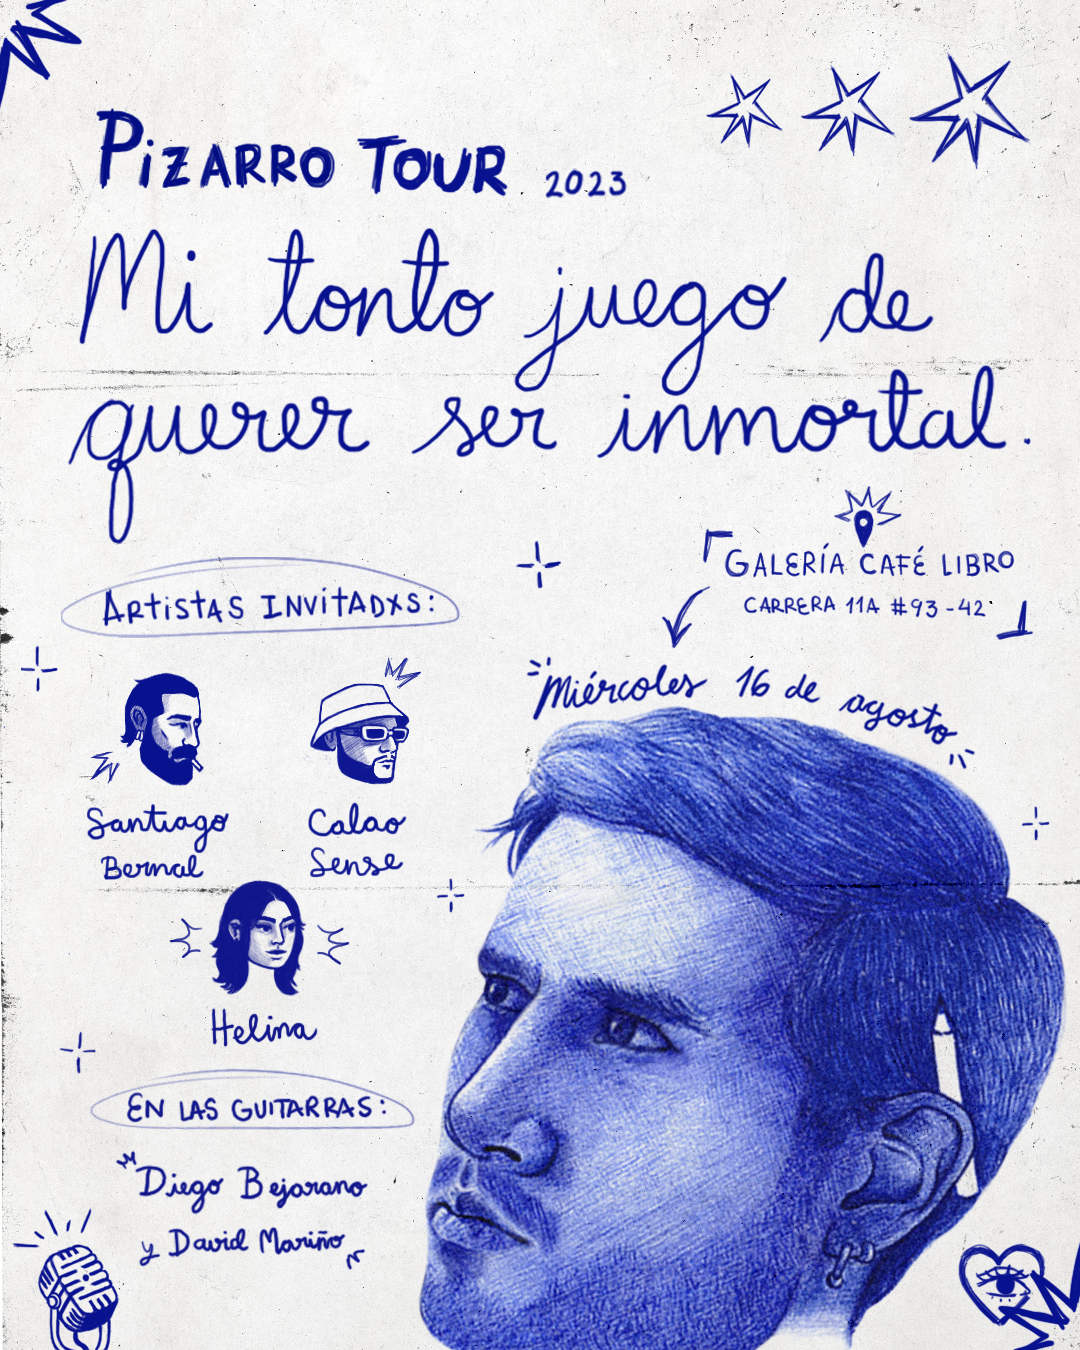 PiZARRO TOUR 2023
Mi tonto juego de
querer ser inmortal.
GALERÍA CAFÉ LIBRO
CARRERA 11A #93-42
Miércoles 16 de agosto
ARtiStAS INViTADXS:
Santiago
Bernal
Calao
Sense
Helina
EN LAS GUITARRAS:
Diego Bejarano
y David Mariño